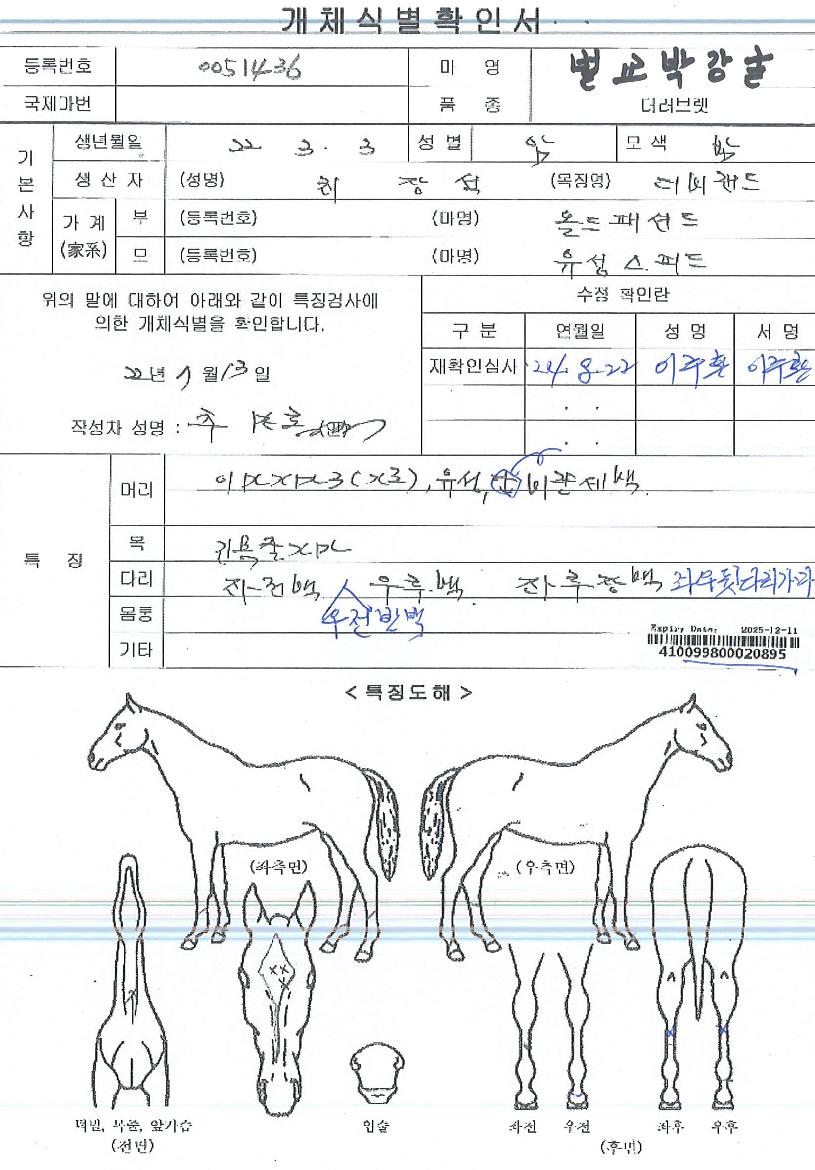 개체식별확인서
등록번호 0051436 마 명 벌교박강률
국제마번 품 종 더러브렛
기본사항
생년월일 22 3. 3 성별 암 모색 밤
생산자 (성명) 최 장 석 (목장명) 더비랜드
가계(家系) 부 (등록번호) (마명) 올드패션드
모 (등록번호) (마명) 유성스피드
위의 말에 대하여 아래와 같이 특징검사에
의한 개체식별을 확인합니다.
22년 7월 13일
작성자 성명 :
수정 확인란
구 분 연월일 성 명 서 명
재확인심사 24. 8. 22 이주환 이주환
. .
. .
특 징
머리 유성, 비량세백
목
다리 좌전백 우후백 좌후장백 좌우뒷다리가마
우전반백
몸통
기타
Expiry Date: 2025-12-11
410099800020895
<특징도해>
(좌측면) (우측면)
XX
턱밑, 목줄, 앞가슴
(전면)
입술
좌전 우전 좌후 우후
(후면)